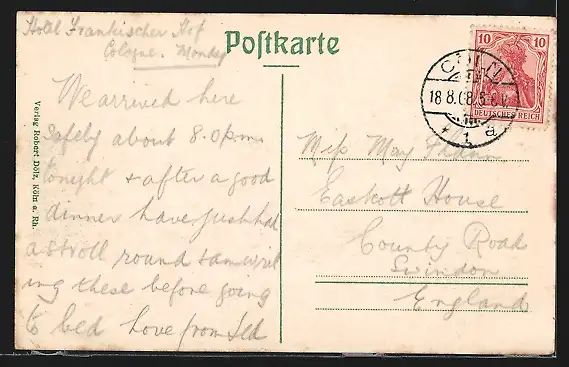 Hotel Frankischer Hof
Cologne. Monday
Postkarte
We arrived here
safely about 8.0 p.m.
tonight & after a good
dinner have just had
a stroll round & am writ
ing these before going
to bed love from
Miss May
Eastcott House
County Road
Swindon
England
10 10
DEUTSCHES REICH
CÖLN
18.8.08.5-6N.
* 1 a
Verlag Robert Dölz, Köln a. Rh.